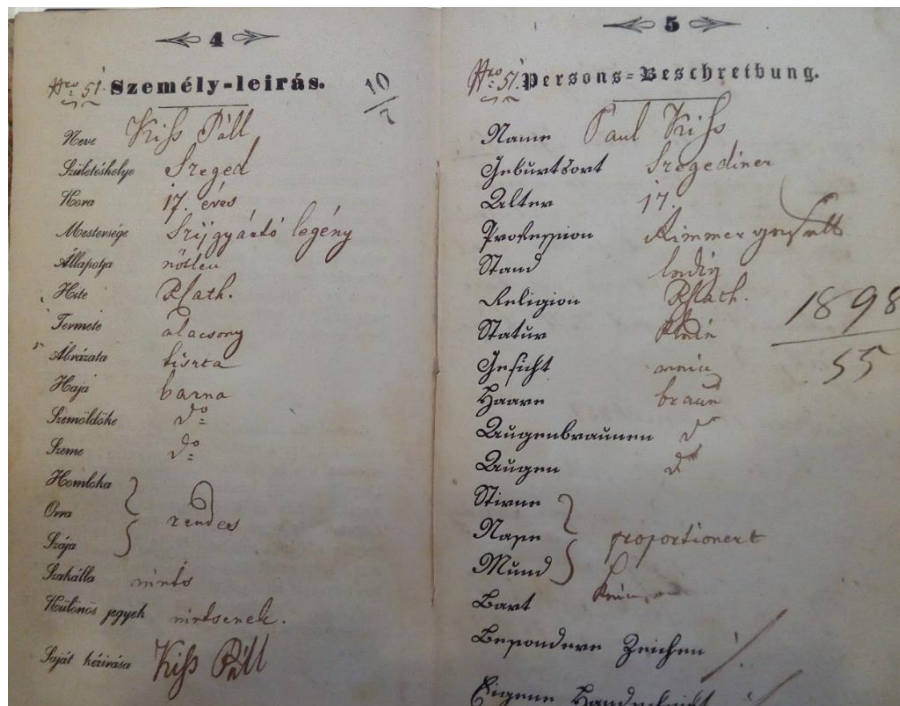 4
Nro 51. Személy-leirás. 10/7
Neve Kiss Páll
Születéshelye Szeged
Kora 17. éves
Mestersége Szijgyártó legény
Állapotja nőtlen
Hite RKath.
Termete alacsony
Ábrázata tiszta
Haja barna
Szemöldöke do
Szeme do
Homloka
Orra rendes
Szája
Szakálla nints
Különös jegyek nintsenek.
Saját kézirása Kiss Páll
5
Nro 51. Persons-Beschreibung.
Name Paul Kiss
Geburtsort Szegediner
Alter 17.
Profession
Stand ledig
Religion RKath.
Statur klein
Gesicht rein
Haare braun
Augenbraunen do
Augen do
Stirne
Nase proportionert
Mund
Bart
Besondere Zeichen ./.
Eigene Handschrift ./.
1898
55